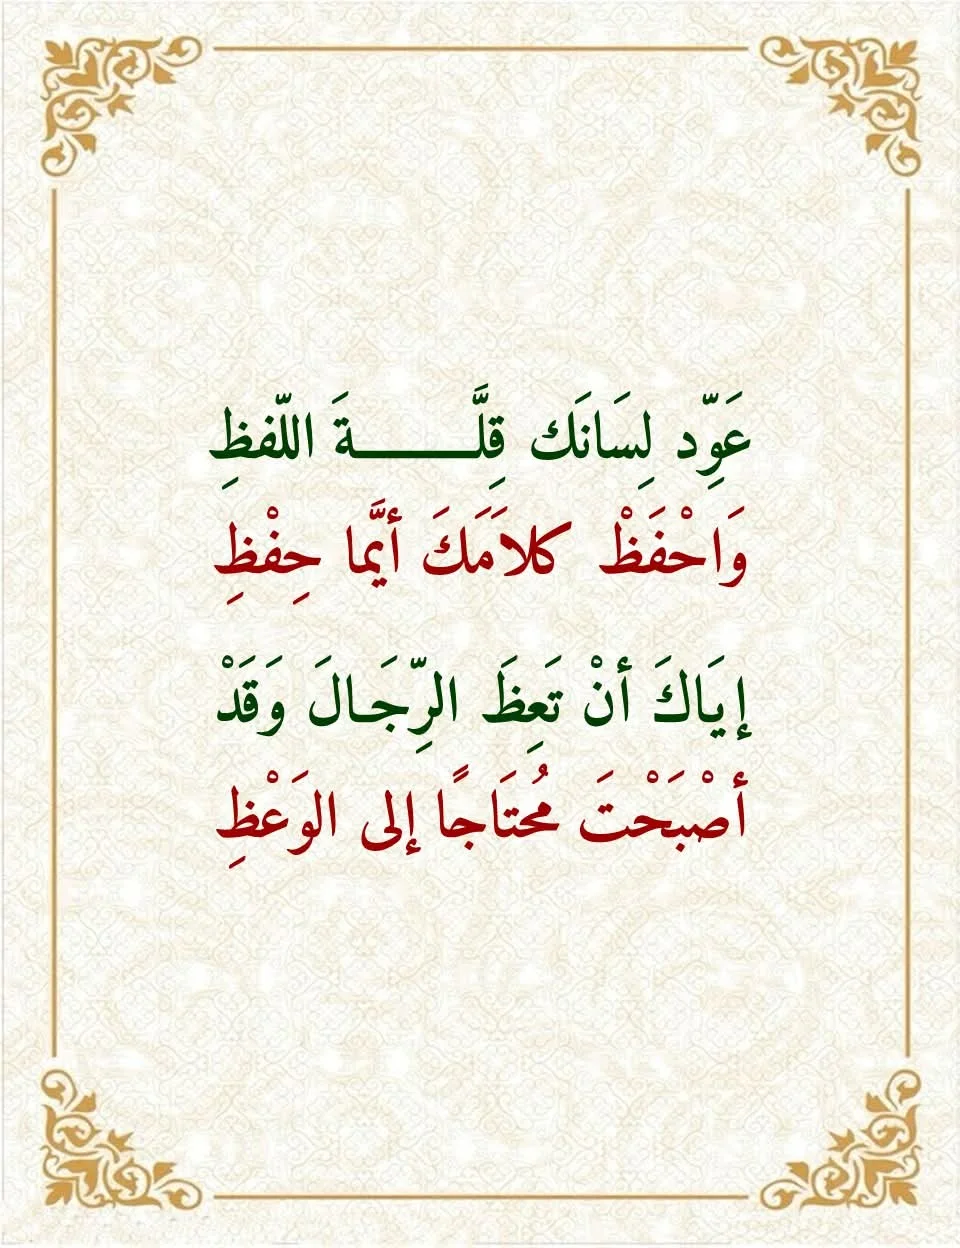 عَوِّد لِسَانَك قِلَّـــــــةَ اللّفظِ
وَاحْفَظْ كلاَمَكَ أيَّما حِفْظِ
إيَاكَ أنْ تَعِظَ الرِّجَـالَ وَقَدْ
أصْبَحْتَ مُحتَاجًا إلى الوَعْظِ